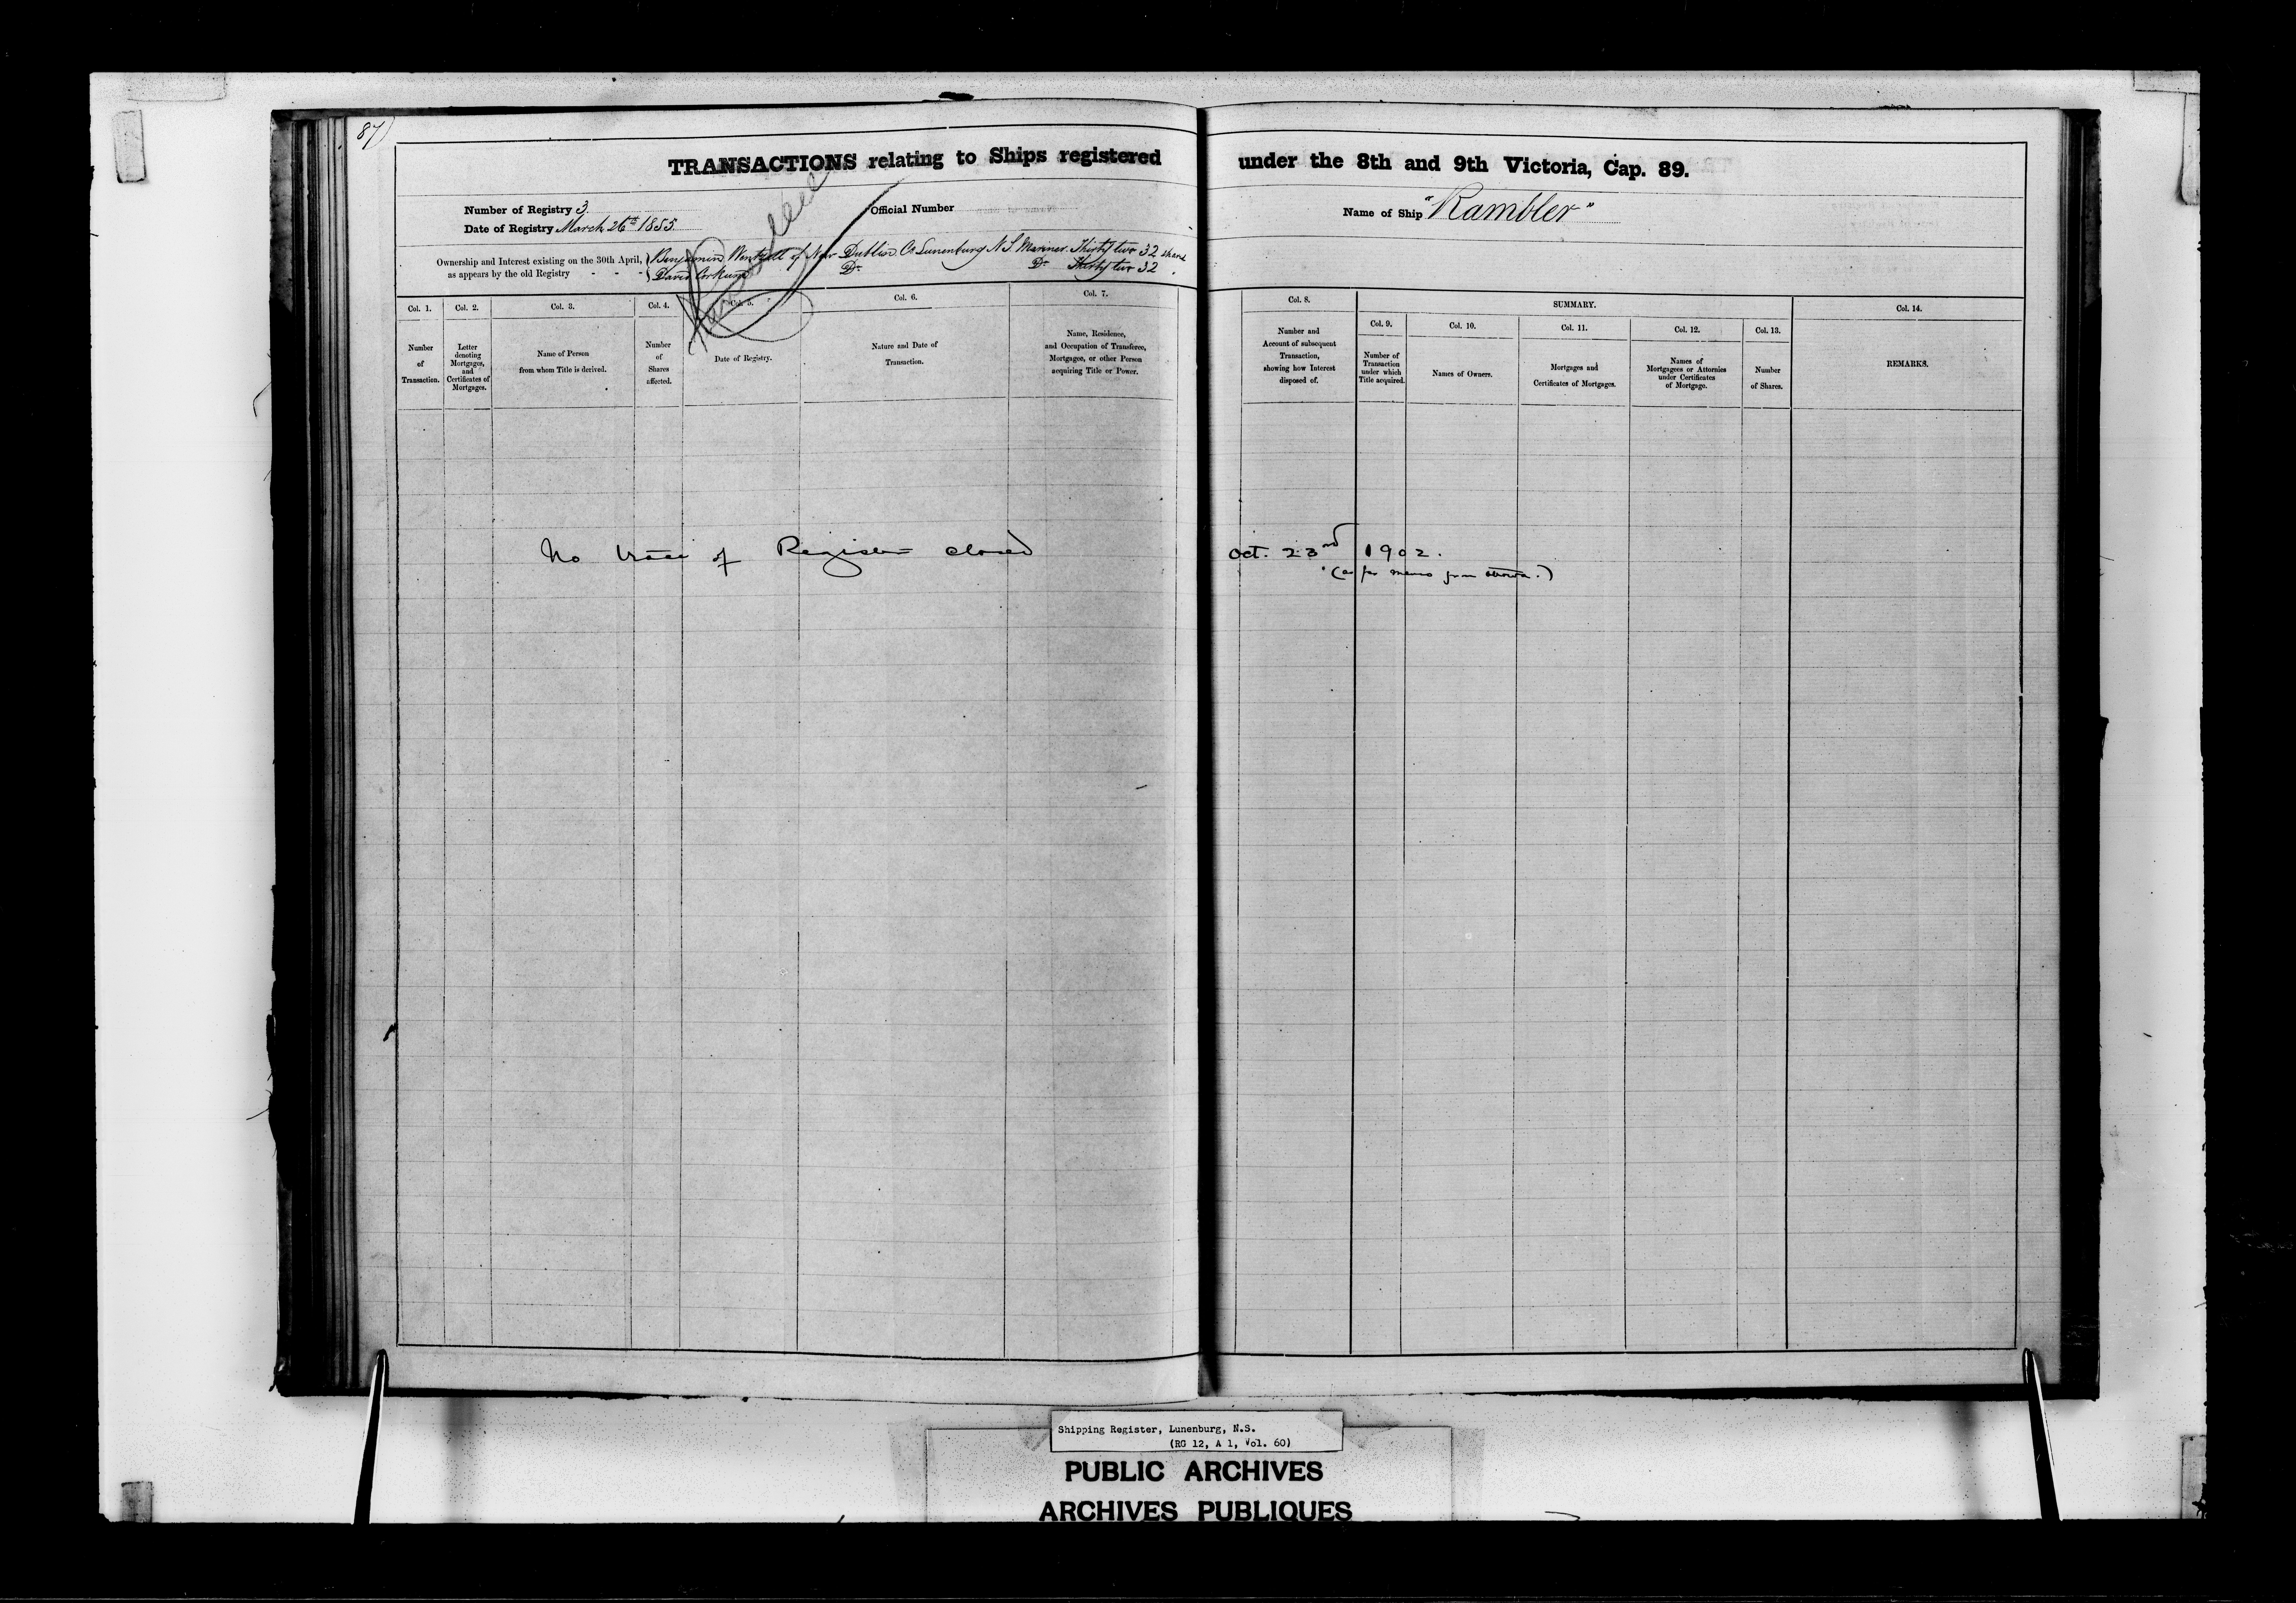 87)
TRANSACTIONS relating to Ships registered under the 8th and 9th Victoria, Cap. 89.
Number of Registry 3
Official Number
Name of Ship "Rambler"
Date of Registry March 26th 1855
Ownership and Interest existing on the 30th April, as appears by the old Registry - - -
Benjamin Wentzell of New Dublin Co Lunenburg N.S. Mariner Thirty two 32 shares
David Corkum Do Do Thirty two 32
Col. 1.
Number of Transaction.
Col. 2.
Letter denoting Mortgages, and Certificates of Mortgages.
Col. 3.
Name of Person from whom Title is derived.
Col. 4.
Number of Shares affected.
Col. 5.
Date of Registry.
Col. 6.
Nature and Date of Transaction.
Col. 7.
Name, Residence, and Occupation of Transferee, Mortgagee, or other Person acquiring Title or Power.
Col. 8.
Number and Account of subsequent Transaction, showing how Interest disposed of.
SUMMARY.
Col. 9.
Number of Transaction under which Title acquired.
Col. 10.
Names of Owners.
Col. 11.
Mortgages and Certificates of Mortgages.
Col. 12.
Names of Mortgagees or Attornies under Certificates of Mortgage.
Col. 13.
Number of Shares.
Col. 14.
REMARKS.
No trace of Register closed Oct. 23rd 1902.
(as per memo from Ottawa.)
Shipping Register, Lunenburg, N.S.
(RG 12, A 1, Vol. 60)
PUBLIC ARCHIVES
ARCHIVES PUBLIQUES